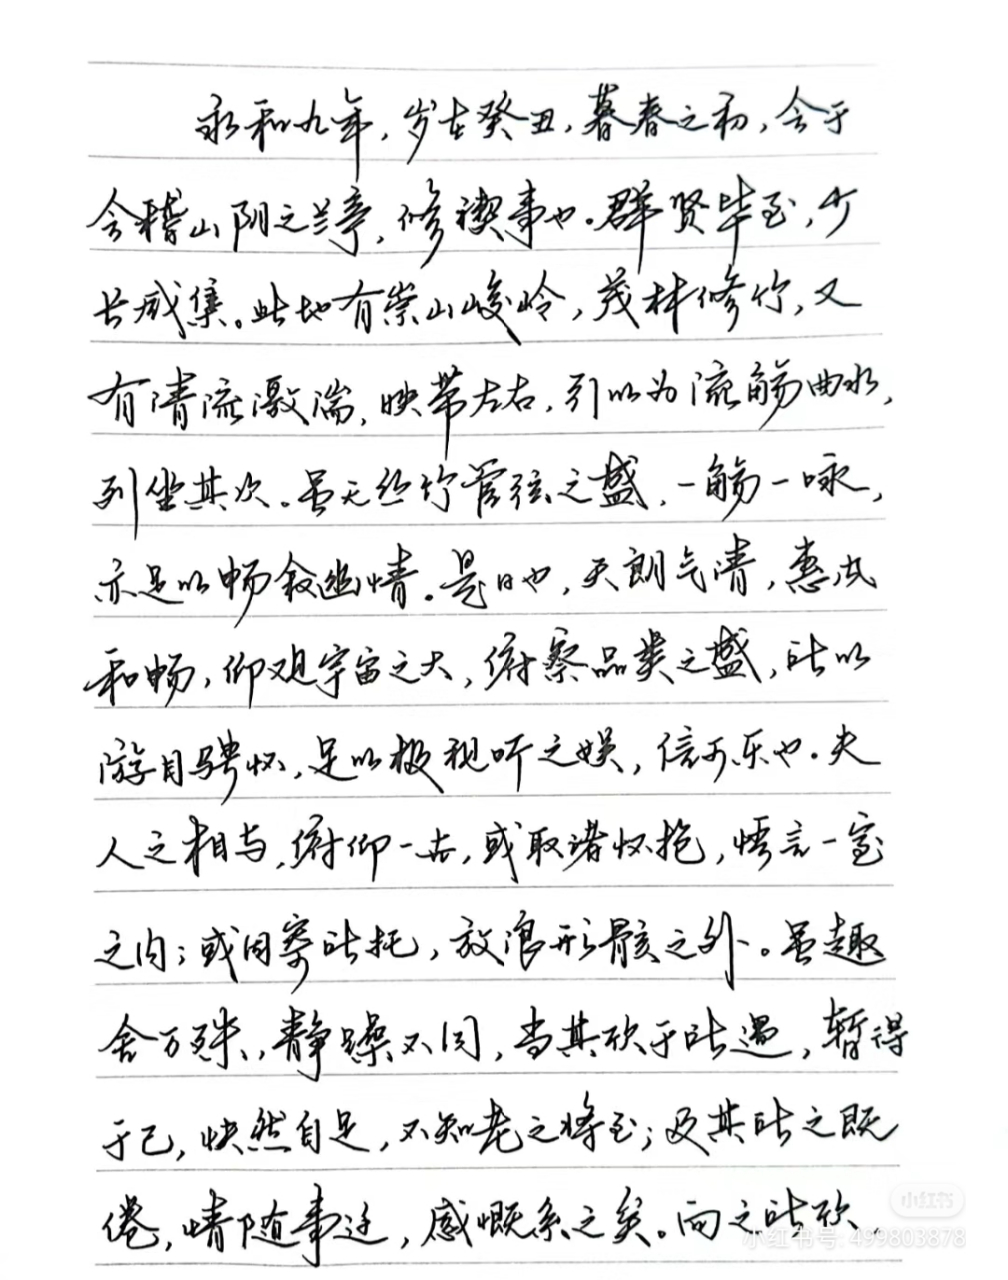 永和九年，岁在癸丑，暮春之初，会于
会稽山阴之兰亭，修禊事也。群贤毕至，少
长咸集。此地有崇山峻岭，茂林修竹，又
有清流激湍，映带左右，引以为流觞曲水，
列坐其次。虽无丝竹管弦之盛，一觞一咏，
亦足以畅叙幽情。是日也，天朗气清，惠风
和畅，仰观宇宙之大，俯察品类之盛，所以
游目骋怀，足以极视听之娱，信可乐也。夫
人之相与，俯仰一世，或取诸怀抱，悟言一室
之内；或因寄所托，放浪形骸之外。虽趣
舍万殊，静躁不同，当其欣于所遇，暂得
于己，快然自足，不知老之将至；及其所之既
倦，情随事迁，感慨系之矣。向之所欣，
小红书
小红书号: 499803878